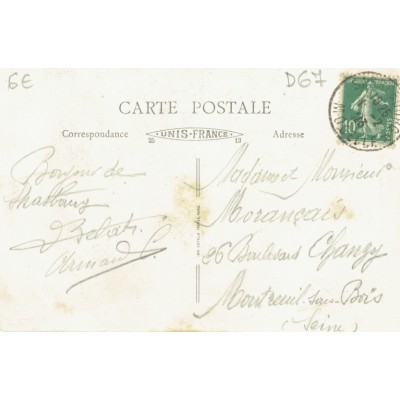 6E
D67
CARTE POSTALE
Correspondance
UNIS-FRANCE
Adresse
25
13
10
Bonjour de
Strasbourg
Armand
Madame et Monsieur
Morançais
26 Boulevard Changy
Montreuil-sous-Bois
(Seine)